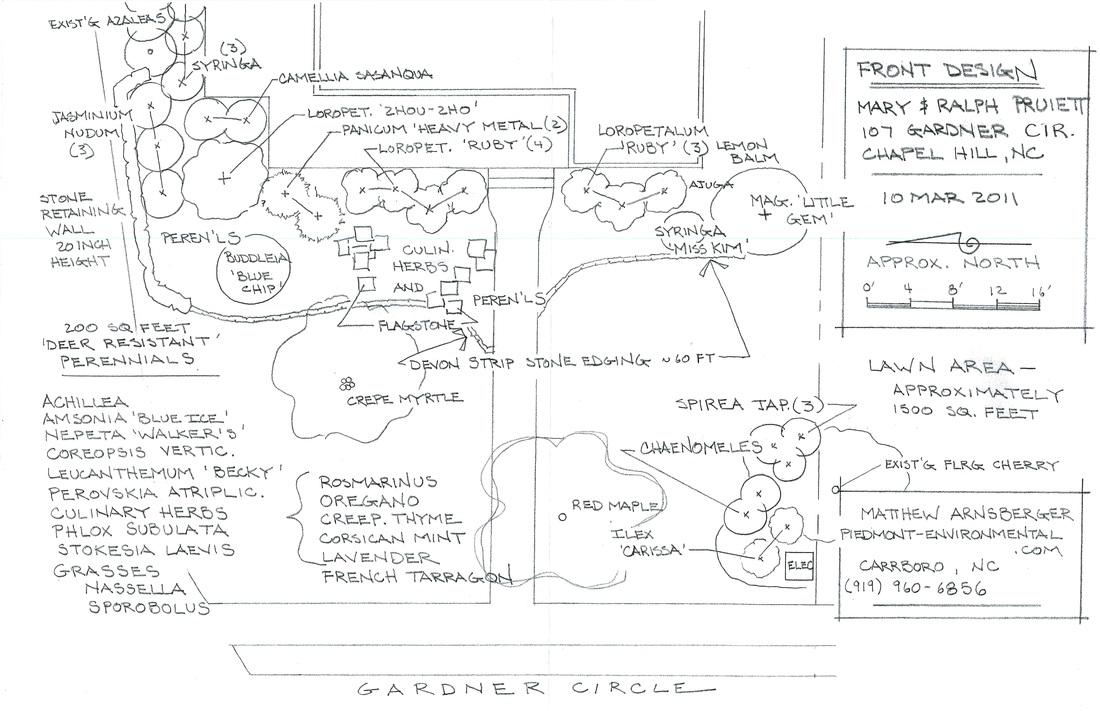 EXIST'G AZALEAS
(3)
SYRINGA
CAMELLIA SASANQUA
JASMINIUM
NUDUM
(3)
LOROPET. 'ZHOU-ZHO'
PANICUM 'HEAVY METAL (2)
LOROPET. 'RUBY' (4)
LOROPETALUM
'RUBY' (3)
LEMON
BALM
AJUGA
MAG. 'LITTLE
GEM'
SYRINGA
'MISS KIM'
STONE
RETAINING
WALL
20 INCH
HEIGHT
PEREN'LS
BUDDLEIA
'BLUE
CHIP'
CULIN.
HERBS
AND
PEREN'LS
FLAGSTONE
DEVON STRIP STONE EDGING ~60 FT
CREPE MYRTLE
200 SQ FEET
'DEER RESISTANT'
PERENNIALS
ACHILLEA
AMSONIA 'BLUE ICE'
NEPETA 'WALKER'S'
COREOPSIS VERTIC.
LEUCANTHEMUM 'BECKY'
PEROVSKIA ATRIPLIC.
CULINARY HERBS
PHLOX SUBULATA
STOKESIA LAEVIS
GRASSES
NASSELLA
SPOROBOLUS
ROSMARINUS
OREGANO
CREEP. THYME
CORSICAN MINT
LAVENDER
FRENCH TARRAGON
RED MAPLE
SPIREA JAP. (3)
CHAENOMELES
ILEX
'CARISSA'
ELEC
FRONT DESIGN
MARY & RALPH PRUIETT
107 GARDNER CIR.
CHAPEL HILL, NC
10 MAR 2011
APPROX. NORTH
0' 4 8' 12 16'
LAWN AREA -
APPROXIMATELY
1500 SQ. FEET
EXIST'G FLRG CHERRY
MATTHEW ARNSBERGER
PIEDMONT-ENVIRONMENTAL
.COM
CARRBORO, NC
(919) 960-6856
GARDNER CIRCLE